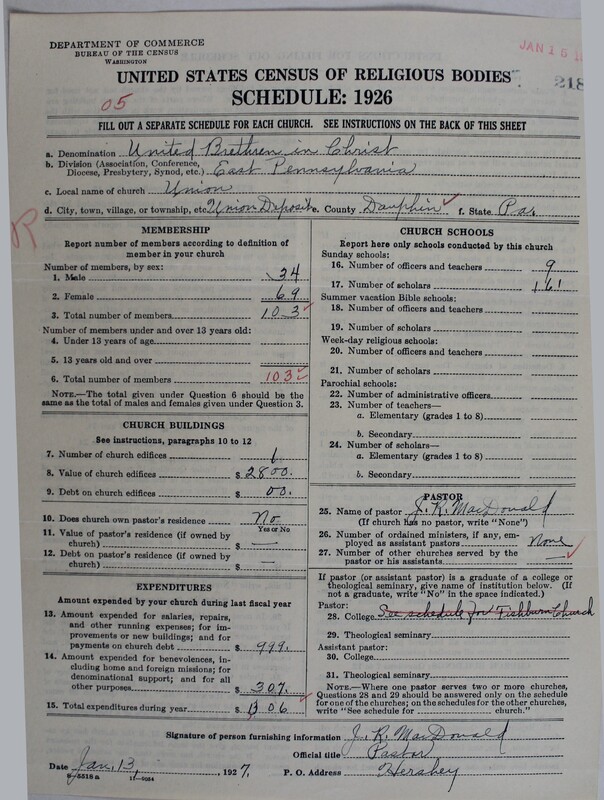 DEPARTMENT OF COMMERCE
BUREAU OF THE CENSUS
WASHINGTON
JAN 15
218
UNITED STATES CENSUS OF RELIGIOUS BODIES
SCHEDULE: 1926
05
FILL OUT A SEPARATE SCHEDULE FOR EACH CHURCH. SEE INSTRUCTIONS ON THE BACK OF THIS SHEET
a. Denomination United Brethren in Christ
b. Division (Association, Conference, Diocese, Presbytery, Synod, etc.) East Pennsylvania
c. Local name of church Union
d. City, town, village, or township, etc. Union Deposit e. County Dauphin f. State Pa.
R
MEMBERSHIP
Report number of members according to definition of
member in your church
Number of members, by sex:
1. Male 34
2. Female 69
3. Total number of members 103
Number of members under and over 13 years old:
4. Under 13 years of age
5. 13 years old and over
6. Total number of members 103
NOTE.—The total given under Question 6 should be
the same as the total of males and females given under Question 3.
CHURCH BUILDINGS
See instructions, paragraphs 10 to 12
7. Number of church edifices 1
8. Value of church edifices $ 2800.
9. Debt on church edifices $ 00.
10. Does church own pastor's residence No
Yes or No
11. Value of pastor's residence (if owned by
church) $ —
12. Debt on pastor's residence (if owned by
church) $ —
EXPENDITURES
Amount expended by your church during last fiscal year
13. Amount expended for salaries, repairs,
and other running expenses; for im-
provements or new buildings; and for
payments on church debt $ 999.
14. Amount expended for benevolences, in-
cluding home and foreign missions; for
denominational support; and for all
other purposes $ 307.
15. Total expenditures during year $ 1306
CHURCH SCHOOLS
Report here only schools conducted by this church
Sunday schools:
16. Number of officers and teachers 9
17. Number of scholars 161
Summer vacation Bible schools:
18. Number of officers and teachers
19. Number of scholars
Week-day religious schools:
20. Number of officers and teachers
21. Number of scholars
Parochial schools:
22. Number of administrative officers
23. Number of teachers—
a. Elementary (grades 1 to 8)
b. Secondary
24. Number of scholars—
a. Elementary (grades 1 to 8)
b. Secondary
PASTOR
25. Name of pastor J. R. MacDonald
(If church has no pastor, write "None")
26. Number of ordained ministers, if any, em-
ployed as assistant pastors None
27. Number of other churches served by the
pastor or his assistants
If pastor (or assistant pastor) is a graduate of a college or
theological seminary, give name of institution below. (If
not a graduate, write "No" in the space indicated.)
Pastor:
28. College See schedule for Fishburn Church
29. Theological seminary
Assistant pastor:
30. College
31. Theological seminary
NOTE.—Where one pastor serves two or more churches,
Questions 28 and 29 should be answered only on the schedule
for one of the churches; on the schedules for the other churches,
write "See schedule for church."
Signature of person furnishing information J. R. MacDonald
Official title Pastor
Date Jan. 13, 1927. P. O. Address Hershey
8-5518a 11-9034